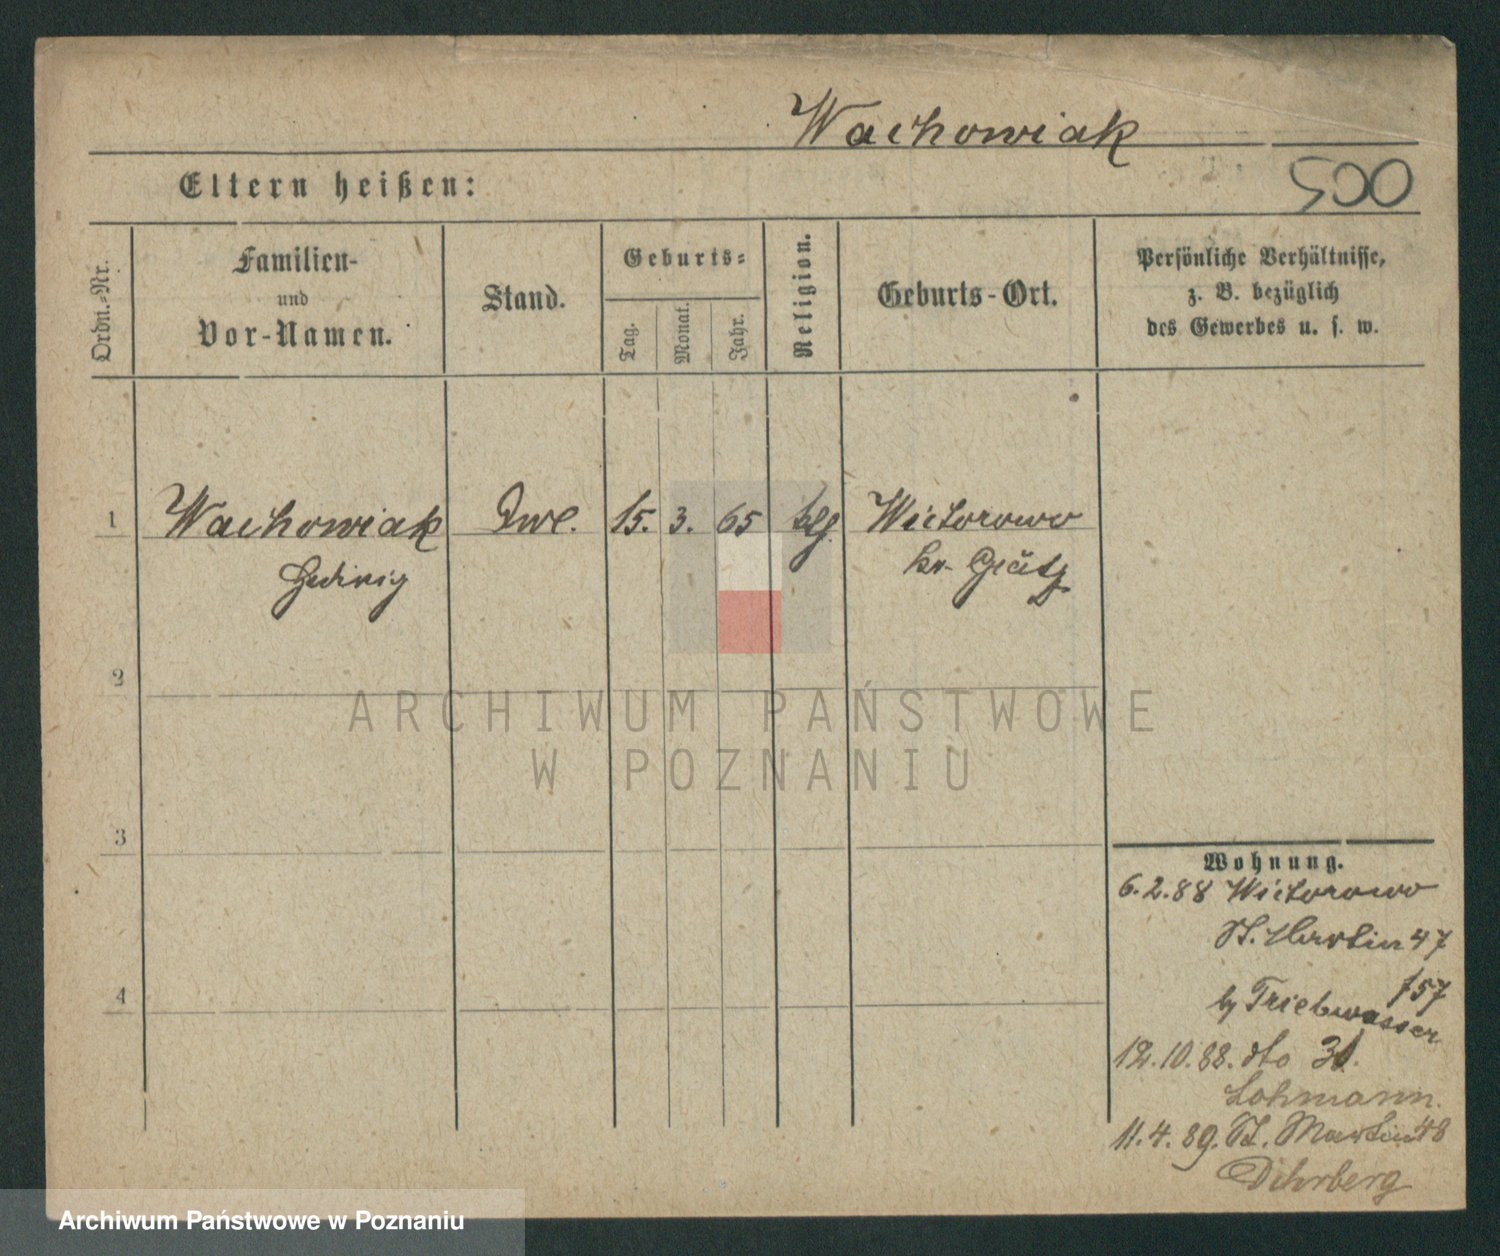 Wachowiak
Eltern heißen:
500
Ordn.-Nr.
Familien-
und
Vor-Namen.
Stand.
Geburts-
Tag.
Monat.
Jahr.
Religion.
Geburts-Ort.
Persönliche Verhältnisse,
z. B. bezüglich
des Gewerbes u. s. w.
1 Wachowiak 15. 3. 65 Wictorowo
Hedwig Kr. Grätz
2
3
4
ARCHIWUM PAŃSTWOWE
W POZNANIU
Wohnung.
6.2.88 Wictorowo
St. Martin 47
by Triebwasser
12.10.88. dto 31.
Lohmann.
11.4.89. St. Martin 48
Archiwum Państwowe w Poznaniu